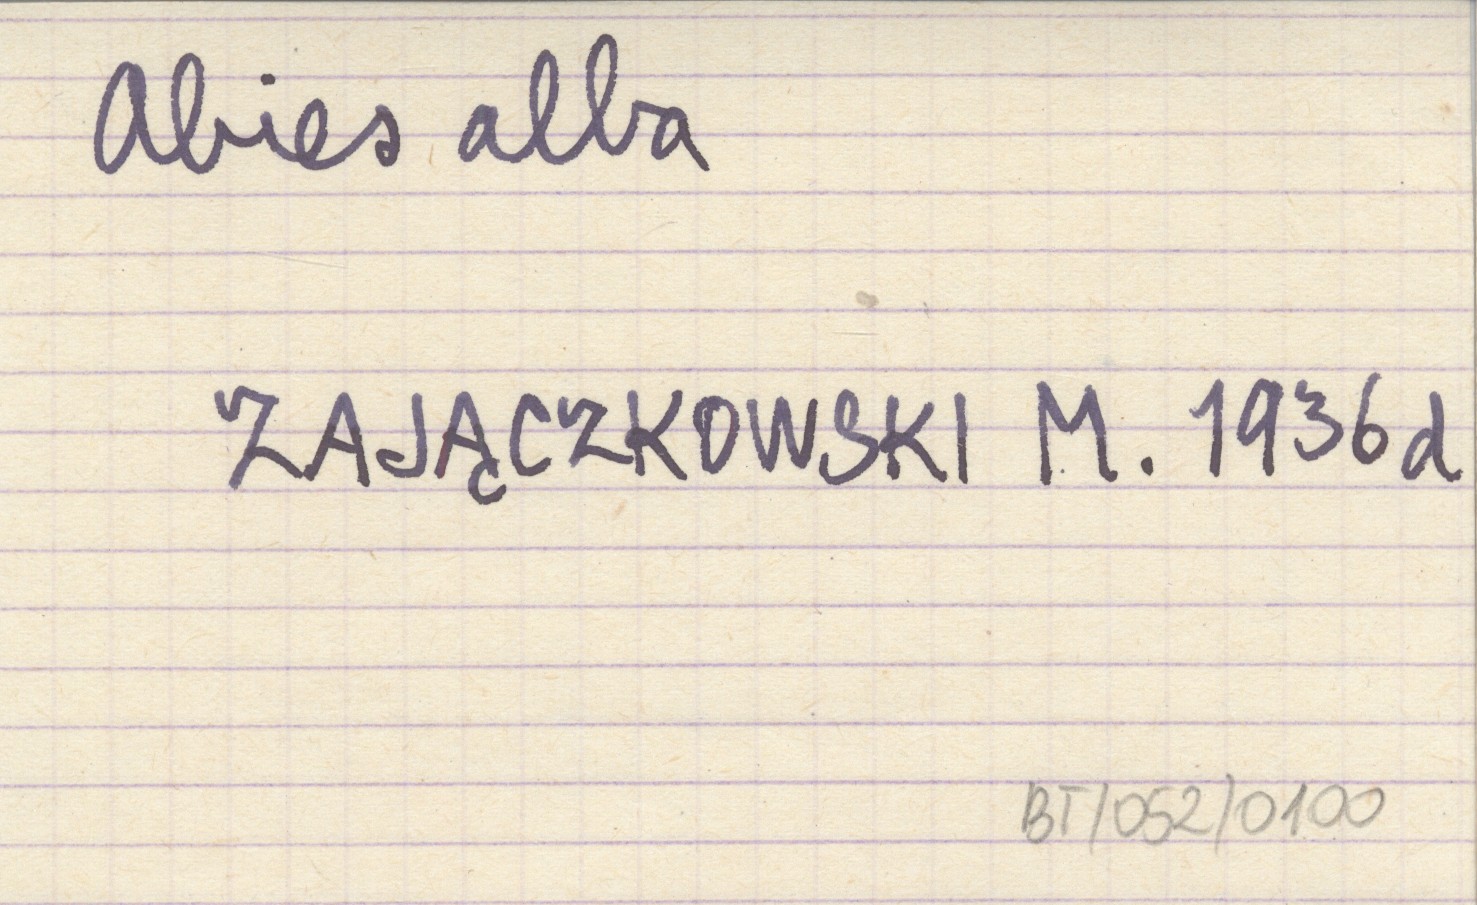 Abies alba
ZAJĄCZKOWSKI M. 1936d
BT/052/0100